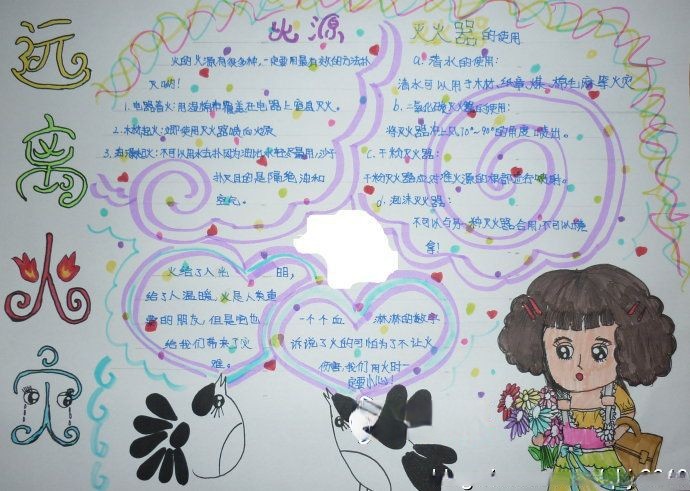 远
离
火
灾
火源
火的火源有很多种，一定要用最有效的方法扑
灭哟！
1.电路着火：用湿棉
在电路上窒息灭火。
2.木材起火：
使用灭火器喷向火表
3.油
起火：不可以用水去扑
用沙子
扑灭目的是隔绝油和
空气。
灭火器的使用
a.清水的使用：
清水可以用于木材、纸章、煤、棉毛麻等火灾
b.二氧化碳灭火器的使用：
将灭火器
70°~90°的角度喷出。
c.干粉灭火器：
干粉灭火器应对准火源的根部
喷射。
d.泡沫灭火器：
不可以与另一种灭火器合用，不可以
拿！
火给了人光明，
给了人温暖，火是人类重
要的朋友，但是它也
给我们带来了灾
难。
一个个血淋淋的数字
诉说了火的可怕为了不让火
伤害，我们用火时一
定要小心！